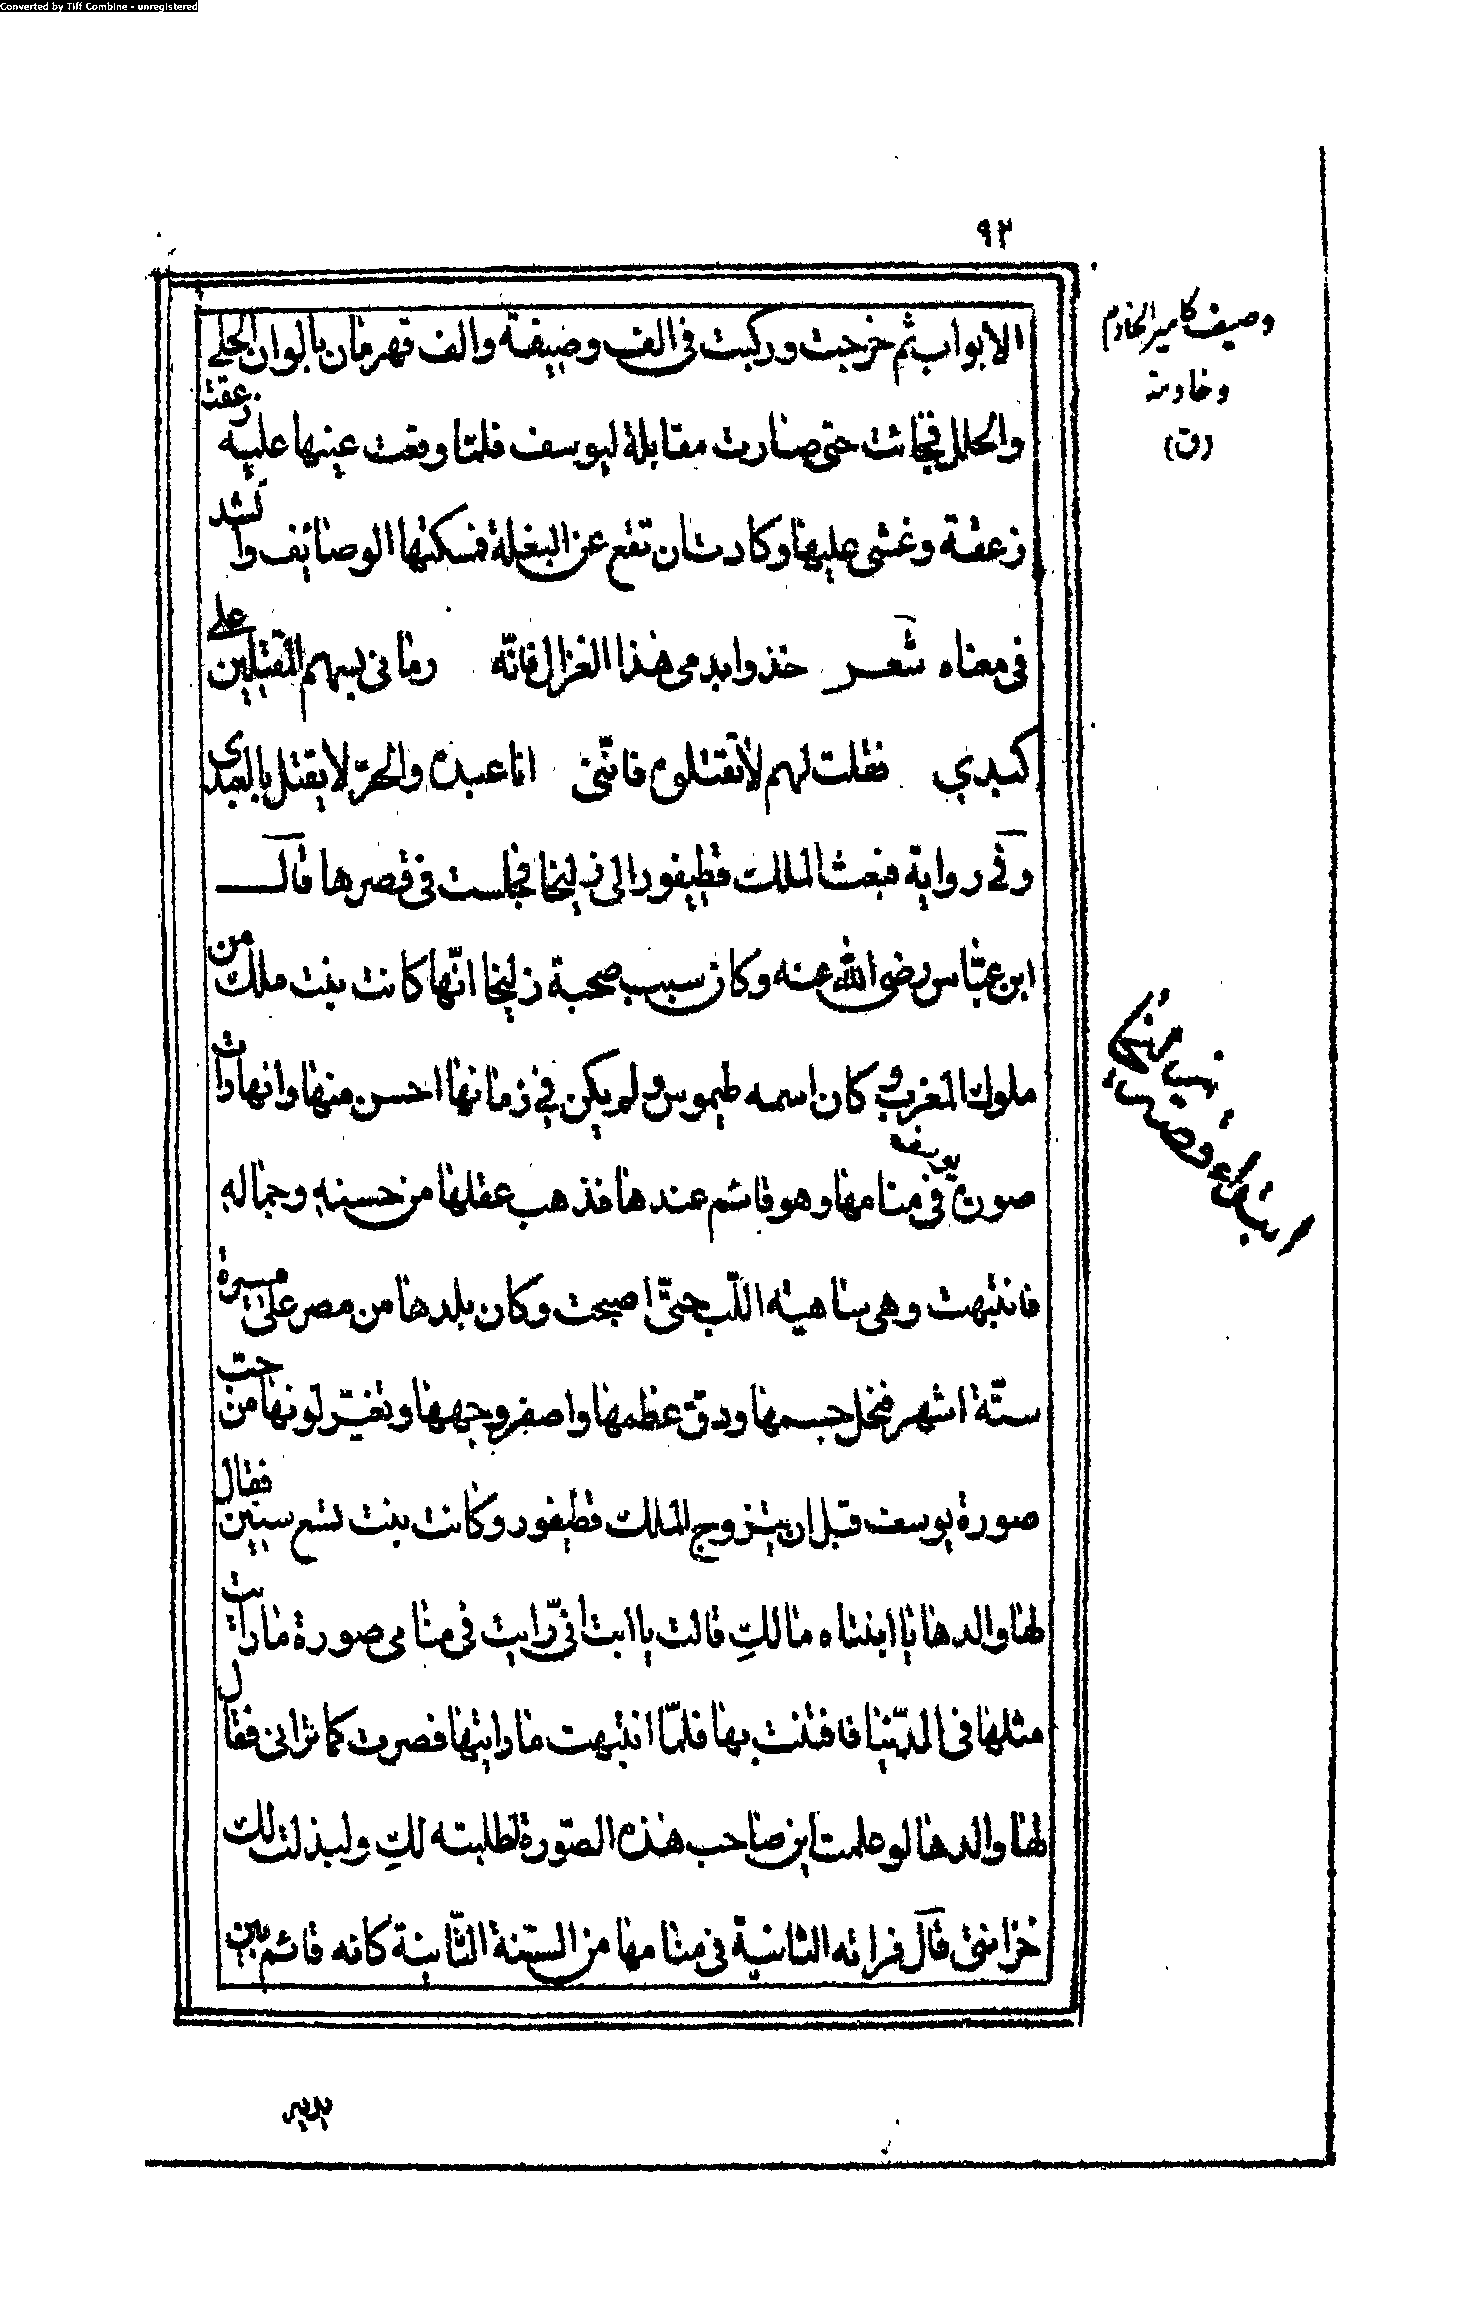 Converted by Tiff Combine - unregistered
٩٢
الابواب ثم خرجت وركبت فى الف وصيفة والف قهرمان بالوان الحلى
والحلل فجائت حتى صارت مقابلة ليوسف فلمّا وقعت عينها عليه زعقت
زعقة وغشى عليها وكادت ان تقع عن البغلة فسكتها الوصائف وانشد
فى معناه شعر خذوا بدمى هذا الغزال فانّه رمانى بسهم المقتلين على
كبدي فقلت لهم لا تقتلوه فانّنى انا عبده والحرّ لا يقتل بالعبدى
وفى رواية فبعث الملك قطيفور الى زليخا فجلست فى قصرها قال
ابن عبّاس رضى الله عنه وكان سبب صحبة زليخا انّها كانت بنت ملك من
ملوك المغرب وكان اسمه طيموس ولم يكن فى زمانها احسن منها وانها رات
صورة يوسف فى منامها وهو قائم عندها فذهب عقلها من حسنه وجماله
فانتبهت وهى ساهية اللّب حتّى اصبحت وكان بلدها من مصر على مسيرة
ستّة اشهر فنحل جسمها ودقّ عظمها واصفر وجهها وتغيّر لونها من حبّ
صورة يوسف قبل ان يتزوج الملك قطيفور وكانت بنت تسع سنين فقال
لها والدها يا ابنتاه مالكِ قالت يا ابت انّى رايت فى منامى صورة ما رايت
مثلها فى الدّنيا فافتنت بها فلمّا انتبهت ما رايتها فصرت كما ترانى فقال
لها والدها لو علمت اين صاحب هذه الصّورة لطلبته لكِ ولبذلت لك
خزائنى قال فراته الثانية فى منامها من السّنة الثّانية كانه قائم بين
يديه
وصيف كامير الخادم
وخادمة
(ق)
ابتداء قصة زليخا